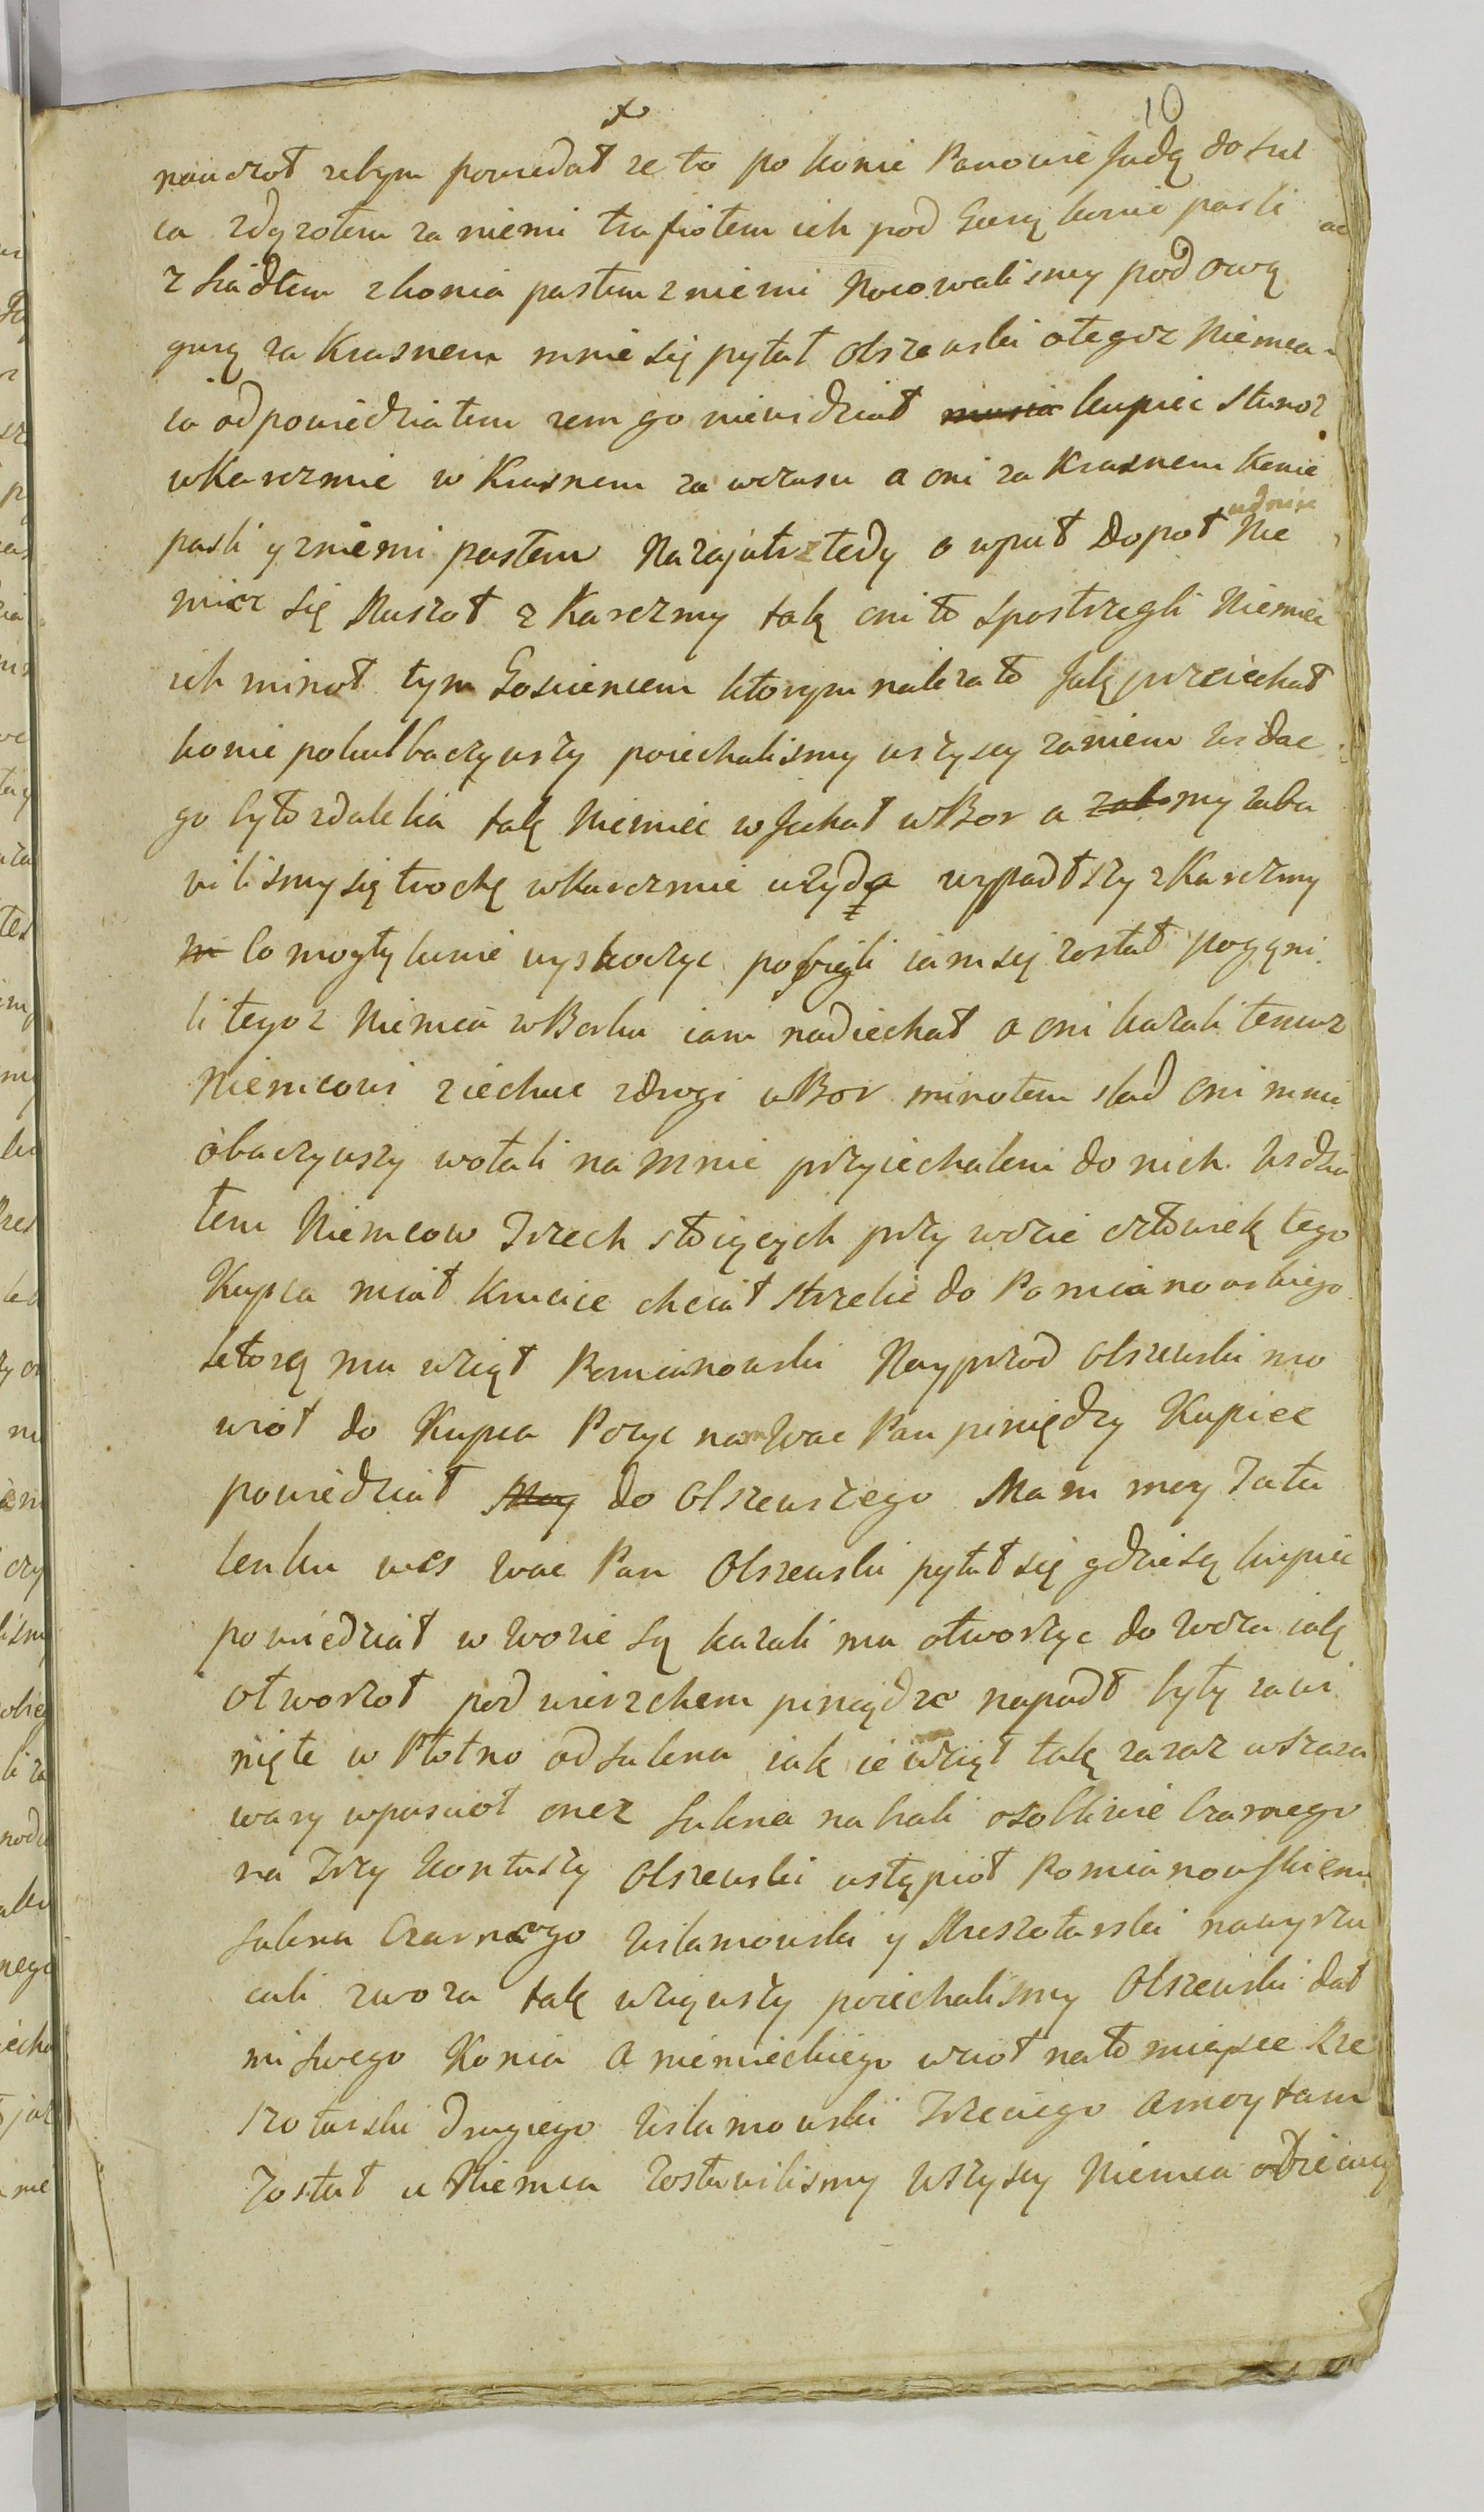 10
nauczoł zebym powiedał ze to po konie Panowie Jadą do Sul
ca zdązołem za niemi trafiołem ich pod Gurą konie pasli
z siadłem z konia pastem z niemi Nocowalismy pod ową
gurą za Krasnem mnie się pytał Olszewski o tegoz Niemca
ia odpowiedziałem zem go niewidział kupiec stanoł
w Karczmie w Krasnem za wczasu a oni za Krasnem konie
pasli y z niemi pastem Nazajutrz tedy o wpuł Dopołudnia Nie
miec się Ruszoł z Karczmy tak oni to spostrzegli Niemiec
ich minoł tym Goscincem ktorym nalezało Jak przeiechał
konie pokulbaczywszy poiechalismy wszyscy za niem widac
go było zdaleka tak Niemiec wJechał w Bor a my zaba
vilismy się trochę w Karczmie u zyda wypadłszy z Karczmy
co mogły konie wyskoczyc pobiegli iam się został pogoni
li tegoz Niemca w Borku iam nadiechał a oni kazali temuz
Niemcowi ziechac z drogi w Bor minołem slad oni mnie
obaczywszy wołali na mnie przyiechałem do nich widzia
łem Niemcow Trzech stoiących przy wozie człowiek tego
Kupca miał krucice chciał strzelic do Pomianowskiego
ktorą mu wziął Pomianowski Nayprzod Olszewski mo
wioł do Kupca Pozyc nam Wac Pan piniędzy Kupiec
powiedział do Olszewskego Mam moy Tatu
lenku wes Wac Pan Olszewski pytał się gdzie są kupiec
powiedział w wozie są kazali mu otworzyc do woza iak
otworzoł pod wierzchem piniądze napadł były zawi
nięte w Płotno od sukna iak ie wziął tak zaraz w szara
wary wpuscioł onez sukna nabrali osobliwie Czarnego
na Trzy kontuszy Olszewski ustąpioł Pomianowskiemu
sukna Czarnego Wilamowski y Reszotarski nawyrzu
cali z woza tak wziąwszy poiechalismy Olszewski dał
mi swego Konia a niemieckiego wzioł na to mieysce Rze
szotarski drugiego Wilamowski Trzeciego a moy tam
został u Niemca zostawilismy wszyscy Niemca